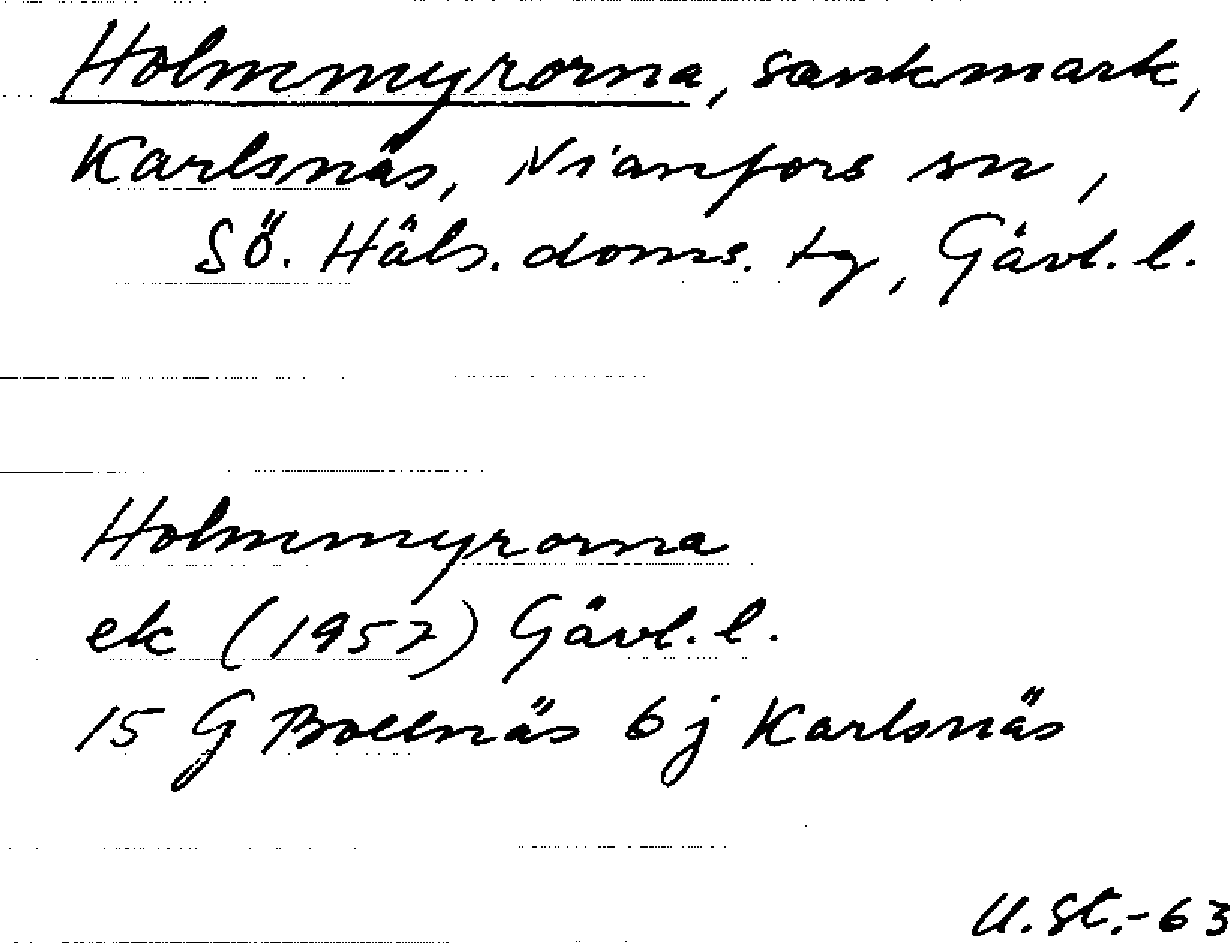 Holmmyrorna, sankmark,
Karlsnäs, Nianfors sn,
Sö. Häls. doms. tg, Gävl. l.
Holmmyrorna
ek (1957) Gävl. l.
15 G Bollnäs 6 j Karlsnäs
U.St.-63